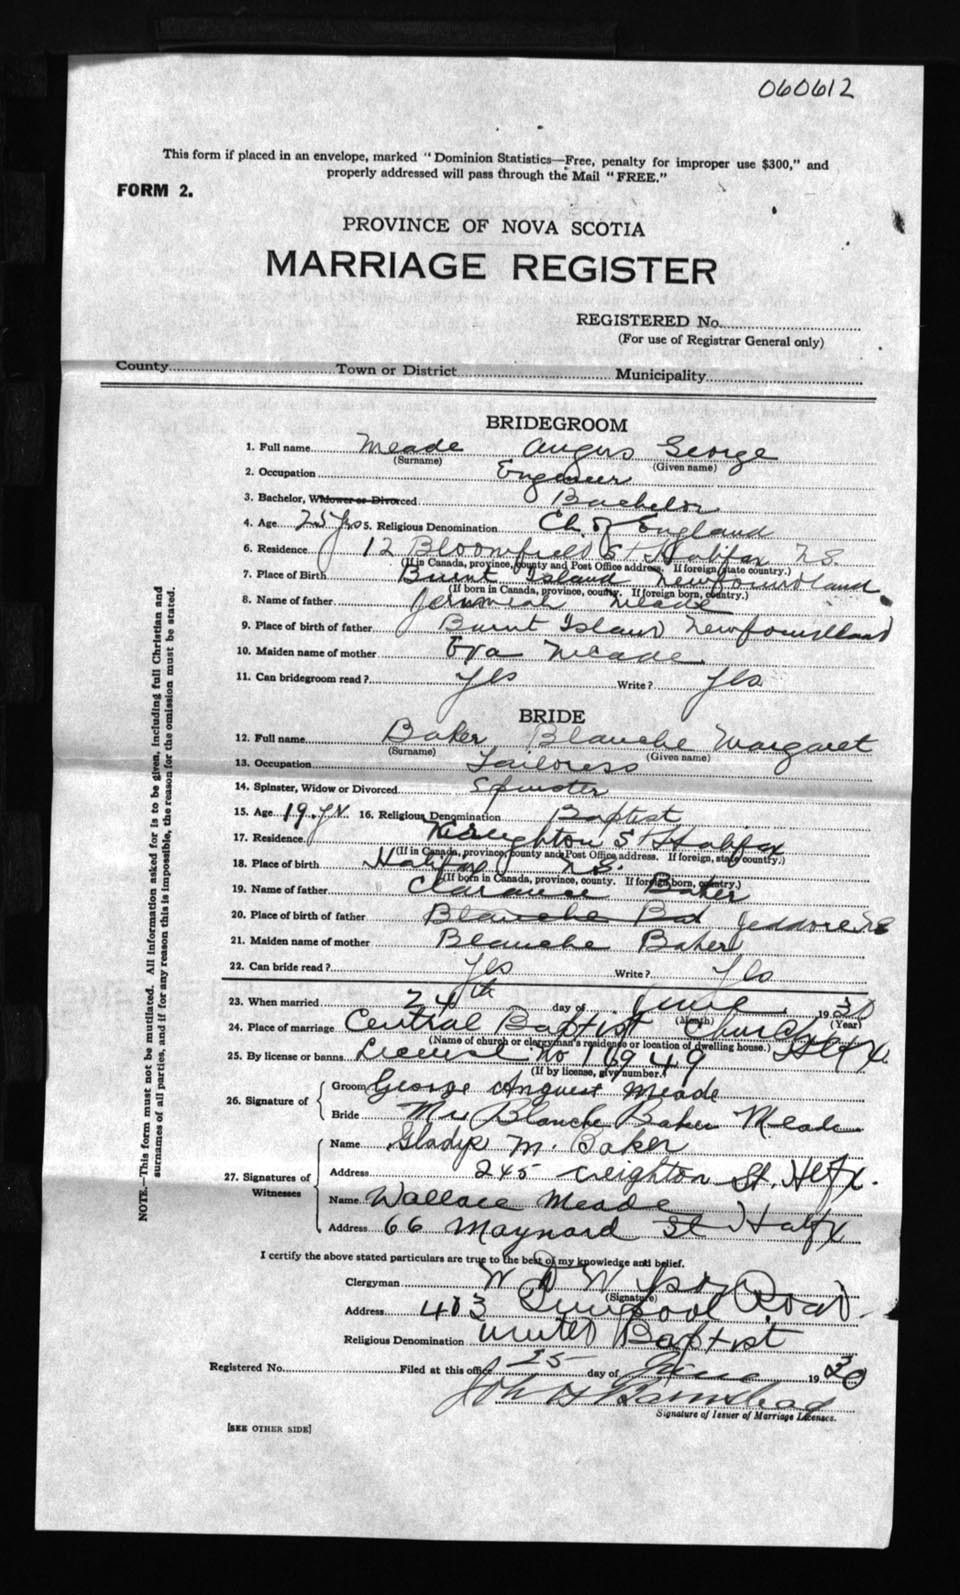 060612
This form if placed in an envelope, marked "Dominion Statistics—Free, penalty for improper use $300," and
properly addressed will pass through the Mail "FREE."
FORM 2.
PROVINCE OF NOVA SCOTIA
MARRIAGE REGISTER
REGISTERED No.
(For use of Registrar General only)
County Town or District Municipality
BRIDEGROOM
1. Full name Meade Angus George
(Surname) (Given name)
2. Occupation Engineer
3. Bachelor, Widower or Divorced Bachelor
4. Age 25 yrs 5. Religious Denomination Ch. of England
6. Residence 12 Bloomfield St Halifax N.S.
(If in Canada, province, county and Post Office address. If foreign, state country.)
7. Place of Birth Burnt Island Newfoundland
(If born in Canada, province, county. If foreign born, country.)
8. Name of father Jermeiah Meade
9. Place of birth of father Burnt Island Newfoundland
10. Maiden name of mother Eva Meade
11. Can bridegroom read? Yes Write? Yes
BRIDE
12. Full name Baker Blanche Margaret
(Surname) (Given name)
13. Occupation Tailoress
14. Spinster, Widow or Divorced Spinster
15. Age 19 yrs. 16. Religious Denomination Baptist
17. Residence St Halifax
(If in Canada, province, county and Post Office address. If foreign, state country.)
18. Place of birth Halifax N.S.
(If born in Canada, province, county. If foreign born, country.)
19. Name of father Clarance Baker
20. Place of birth of father Blanche Bak Jeddore N.S
21. Maiden name of mother Blanche Baker
22. Can bride read? Yes Write? Yes
23. When married 24th day of June 1930
(Month) (Year)
24. Place of marriage Central Baptist Church Hlfx.
(Name of church or clergyman's residence or location of dwelling house.)
25. By license or banns License No 16949
(If by license, give number.)
26. Signature of Groom George Angust Meade
Bride Mrs Blanche Baker Meade
27. Signatures of Witnesses
Name Gladys M. Baker
Address 245 Creighton St. Hlfx.
Name Wallace Meade
Address 66 Maynard St Halfx
I certify the above stated particulars are true to the best of my knowledge and belief.
Clergyman
(Signature)
Address Liverpool Road
Religious Denomination United Baptist
Registered No. Filed at this office 25 day of June 1930
John H Barnstead
Signature of Issuer of Marriage Licenses.
[SEE OTHER SIDE]
NOTE.—This form must not be mutilated. All information asked for is to be given, including full Christian and
surnames of all parties, and if for any reason this is impossible, the reason for the omission must be stated.